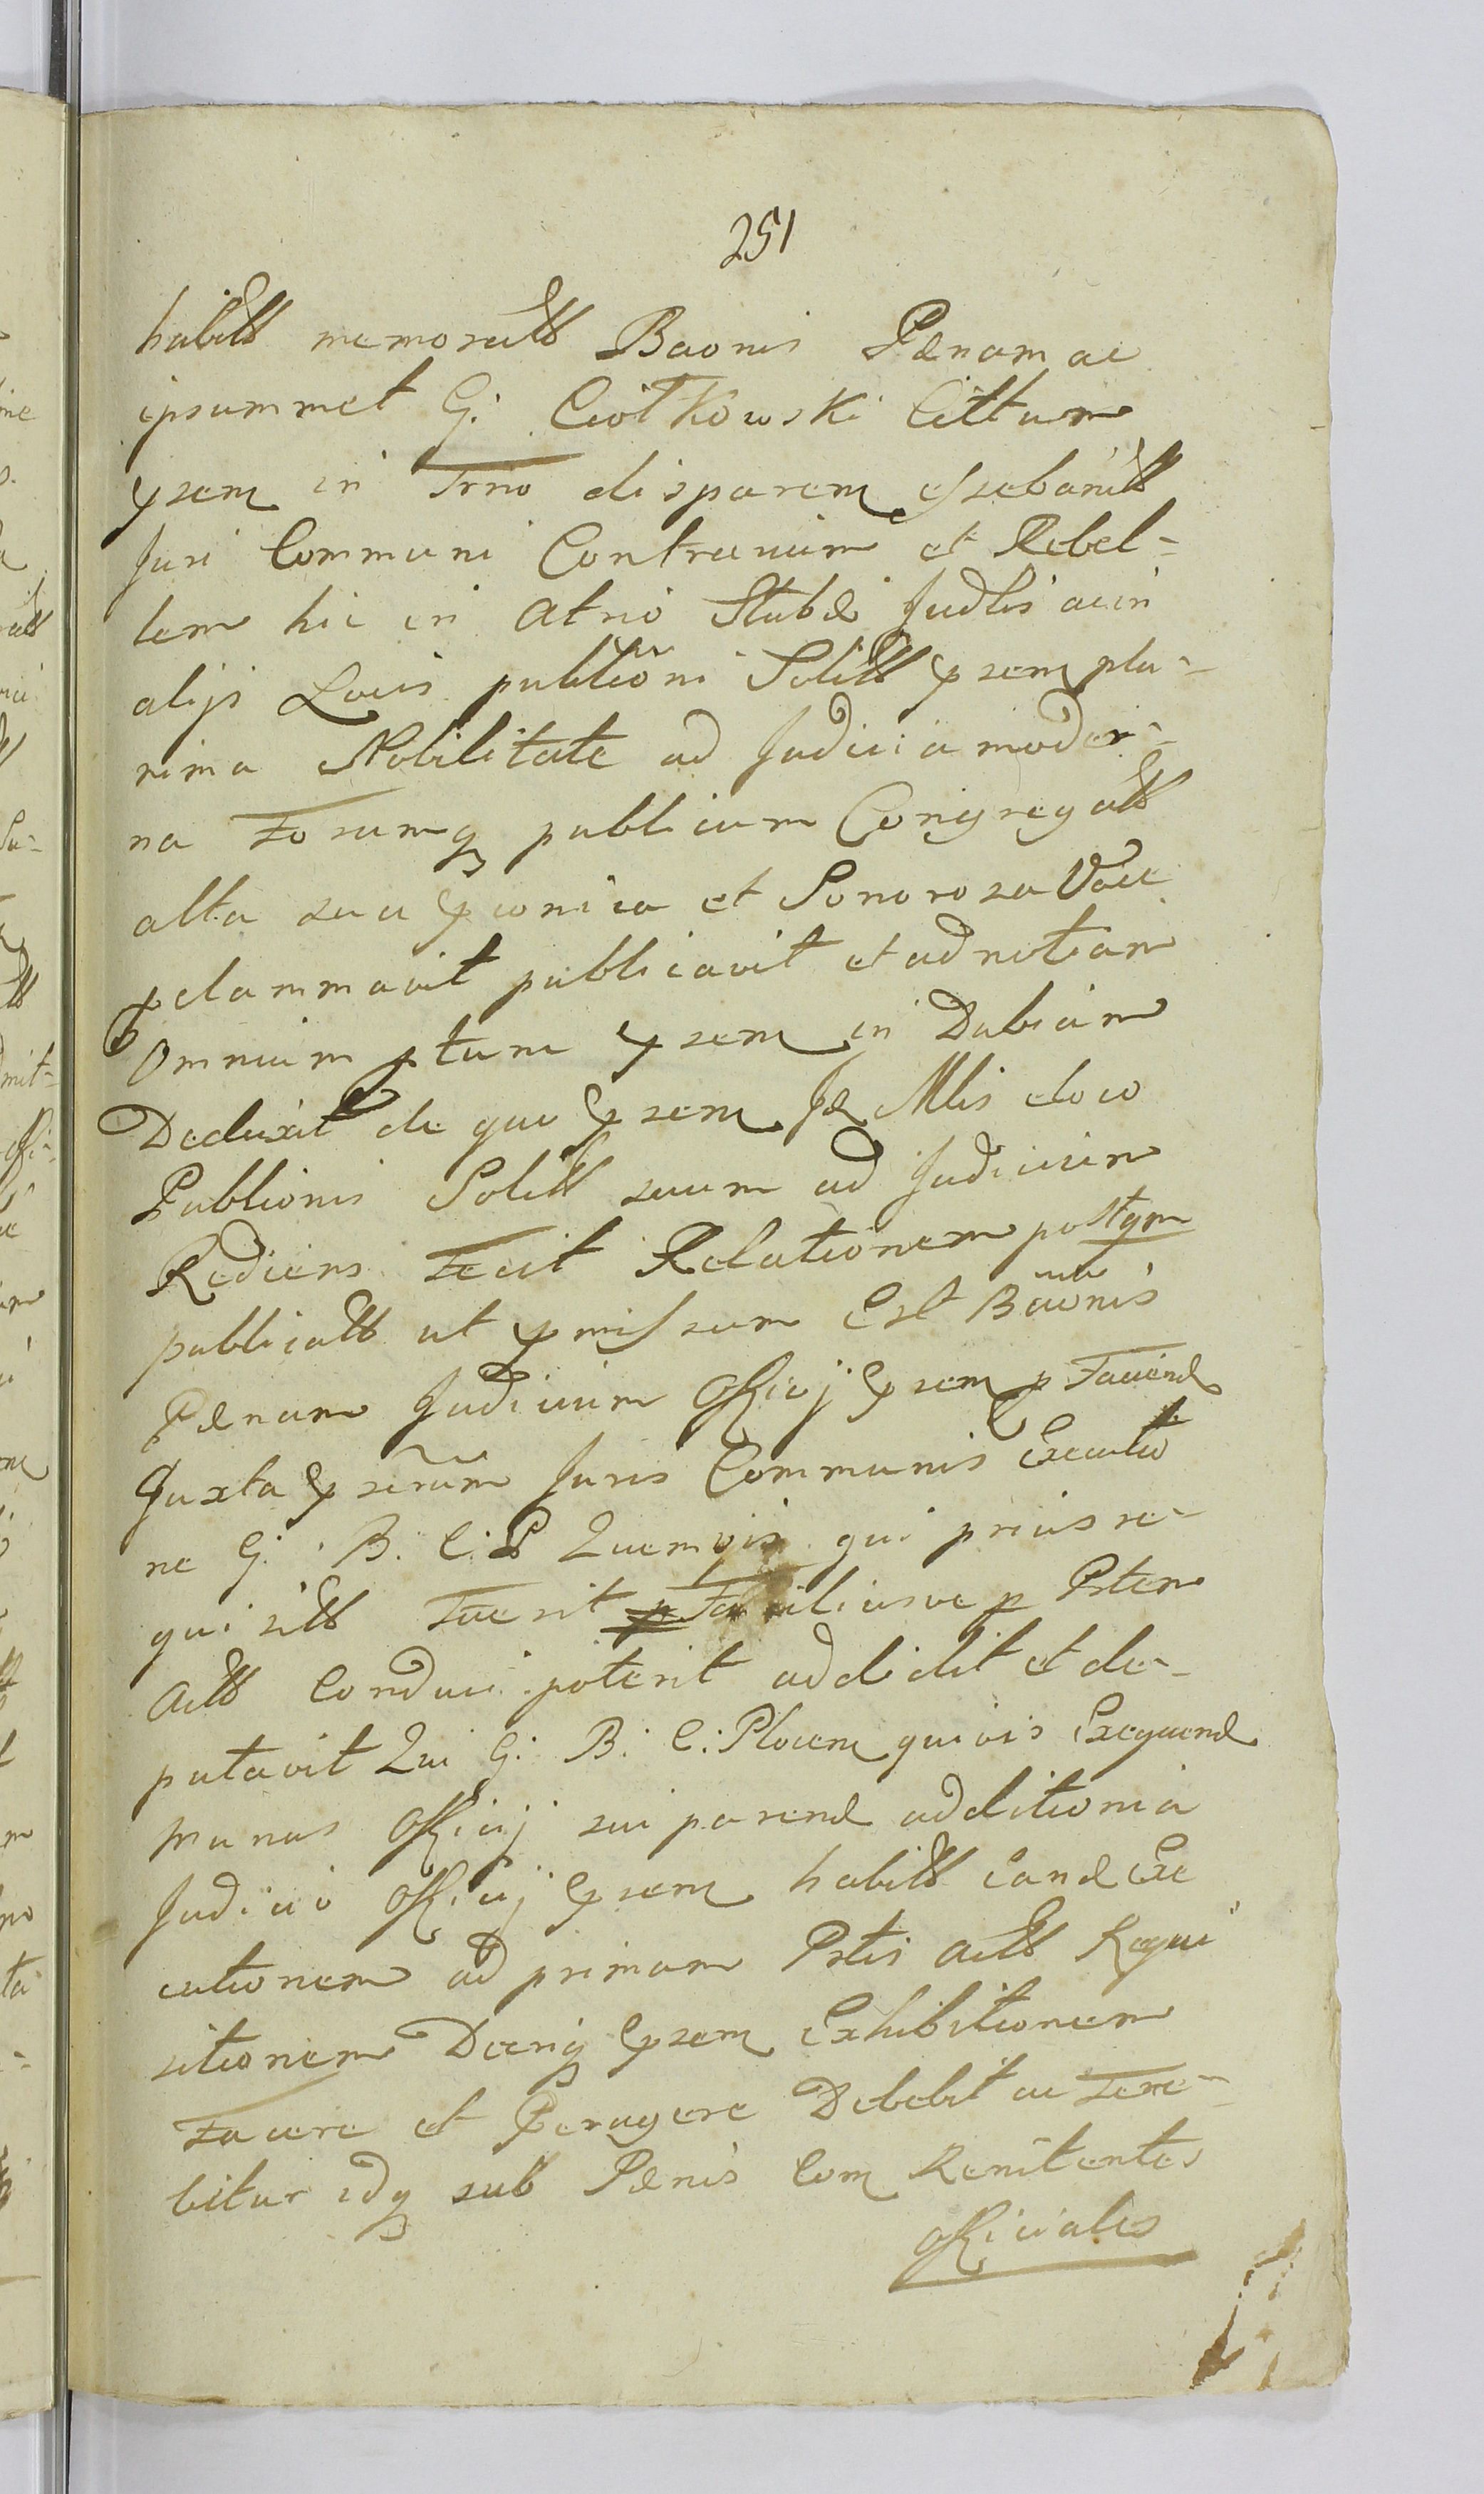 251
habitt memoratt Baonis Pænam ac
ipsummet G: Ciołkowski Cittum
psem in Trno disparem exebannitt
Juri Communi Contrarium et Rebel-
lem hic in Atrio Stubæ Judlis ac in
alijs Locis publiõni Solitt psem plu-
rima Nobilitate ad Judicia moder-
na Forumq publicum Congregatt
alta sua pconica et Sonorosa Voce
pclammavit publicavit et ad notiam
Omnium ptum psem in Dubiam
Deduxit de quo psem Jæ Mlis eloco
Publionis Solitt suum ad Judicium
Rediens Fecit Relationem postqm
publicatt ut pmissum Est Baonis
Pænam Judicium Officij psem p Faciend
Juxta pserũm Juris Communis Executio
ne G: B. C: P Quemvis qui prius re-
quisitt Fuerit Faciliusve p Ptem
Actt Conduci poterit addidit et de-
putavit Qui G: B: C: Plocem quivis Exequend
munus Officij sui parend additioni a
Judicio Officij psem habitt Eand Exe
cutionem ad primam Ptis Actt Requi
sitionem Decriq psem Exhibitionem
Facere et Peragere Debebit ac Tene-
bitur idq sub Pænis Com Renitentes
Officiales